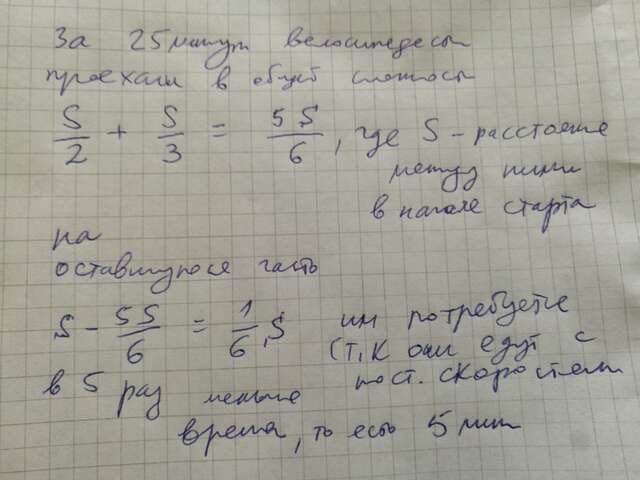 За 25 минут велосипедисты
проехали в общей сложности
S/2 + S/3 = 5S/6, где S - расстояние
между ними
в начале старта
на
оставшуюся часть
S - 5S/6 = 1/6 S им потребуется
(т.к они едут с
пост. скоростями
в 5 раз меньше
времени, то есть 5 мин